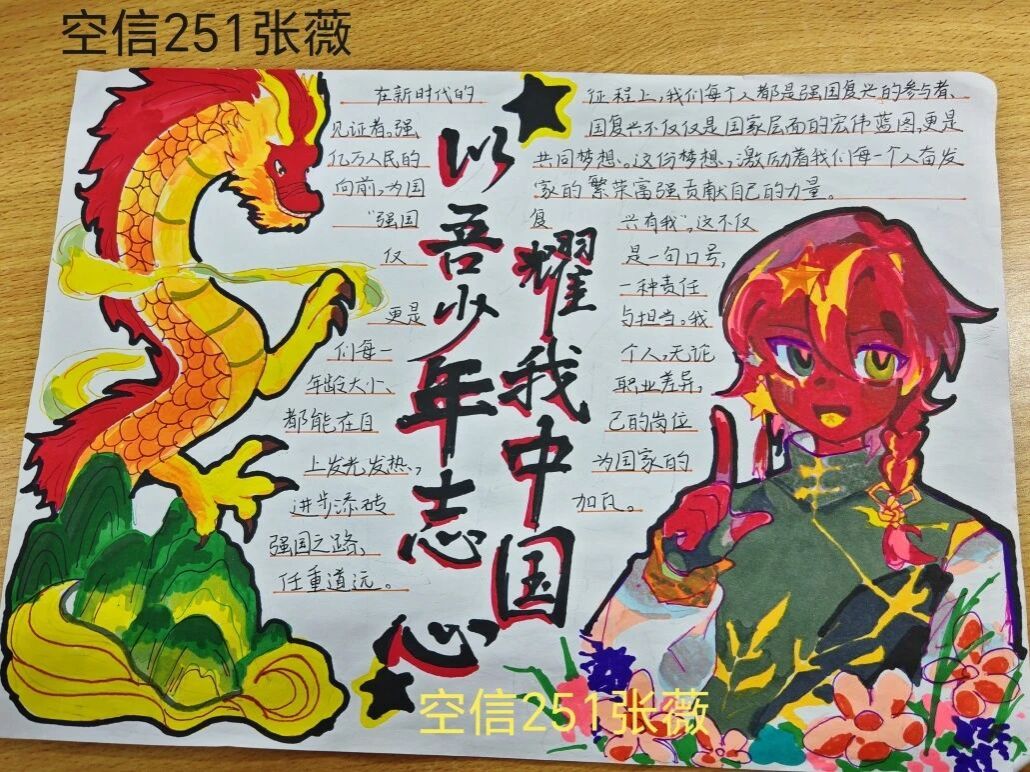 空信251张薇
以吾少年志
耀我中国心
在新时代的征程上,我们每个人都是强国复兴的参与者、
见证者。强国复兴不仅仅是国家层面的宏伟蓝图,更是
亿万人民的共同梦想。这份梦想,激励着我们每一个人奋发
向前,为国家的繁荣富强贡献自己的力量。
“强国复兴有我”,这不仅
仅是一句口号,
更是一种责任
与担当。我
们每一个人,无论
年龄大小、职业差异,
都能在自己的岗位
上发光发热、为国家的
进步添砖加瓦。
强国之路,
任重道远。
空信251张薇